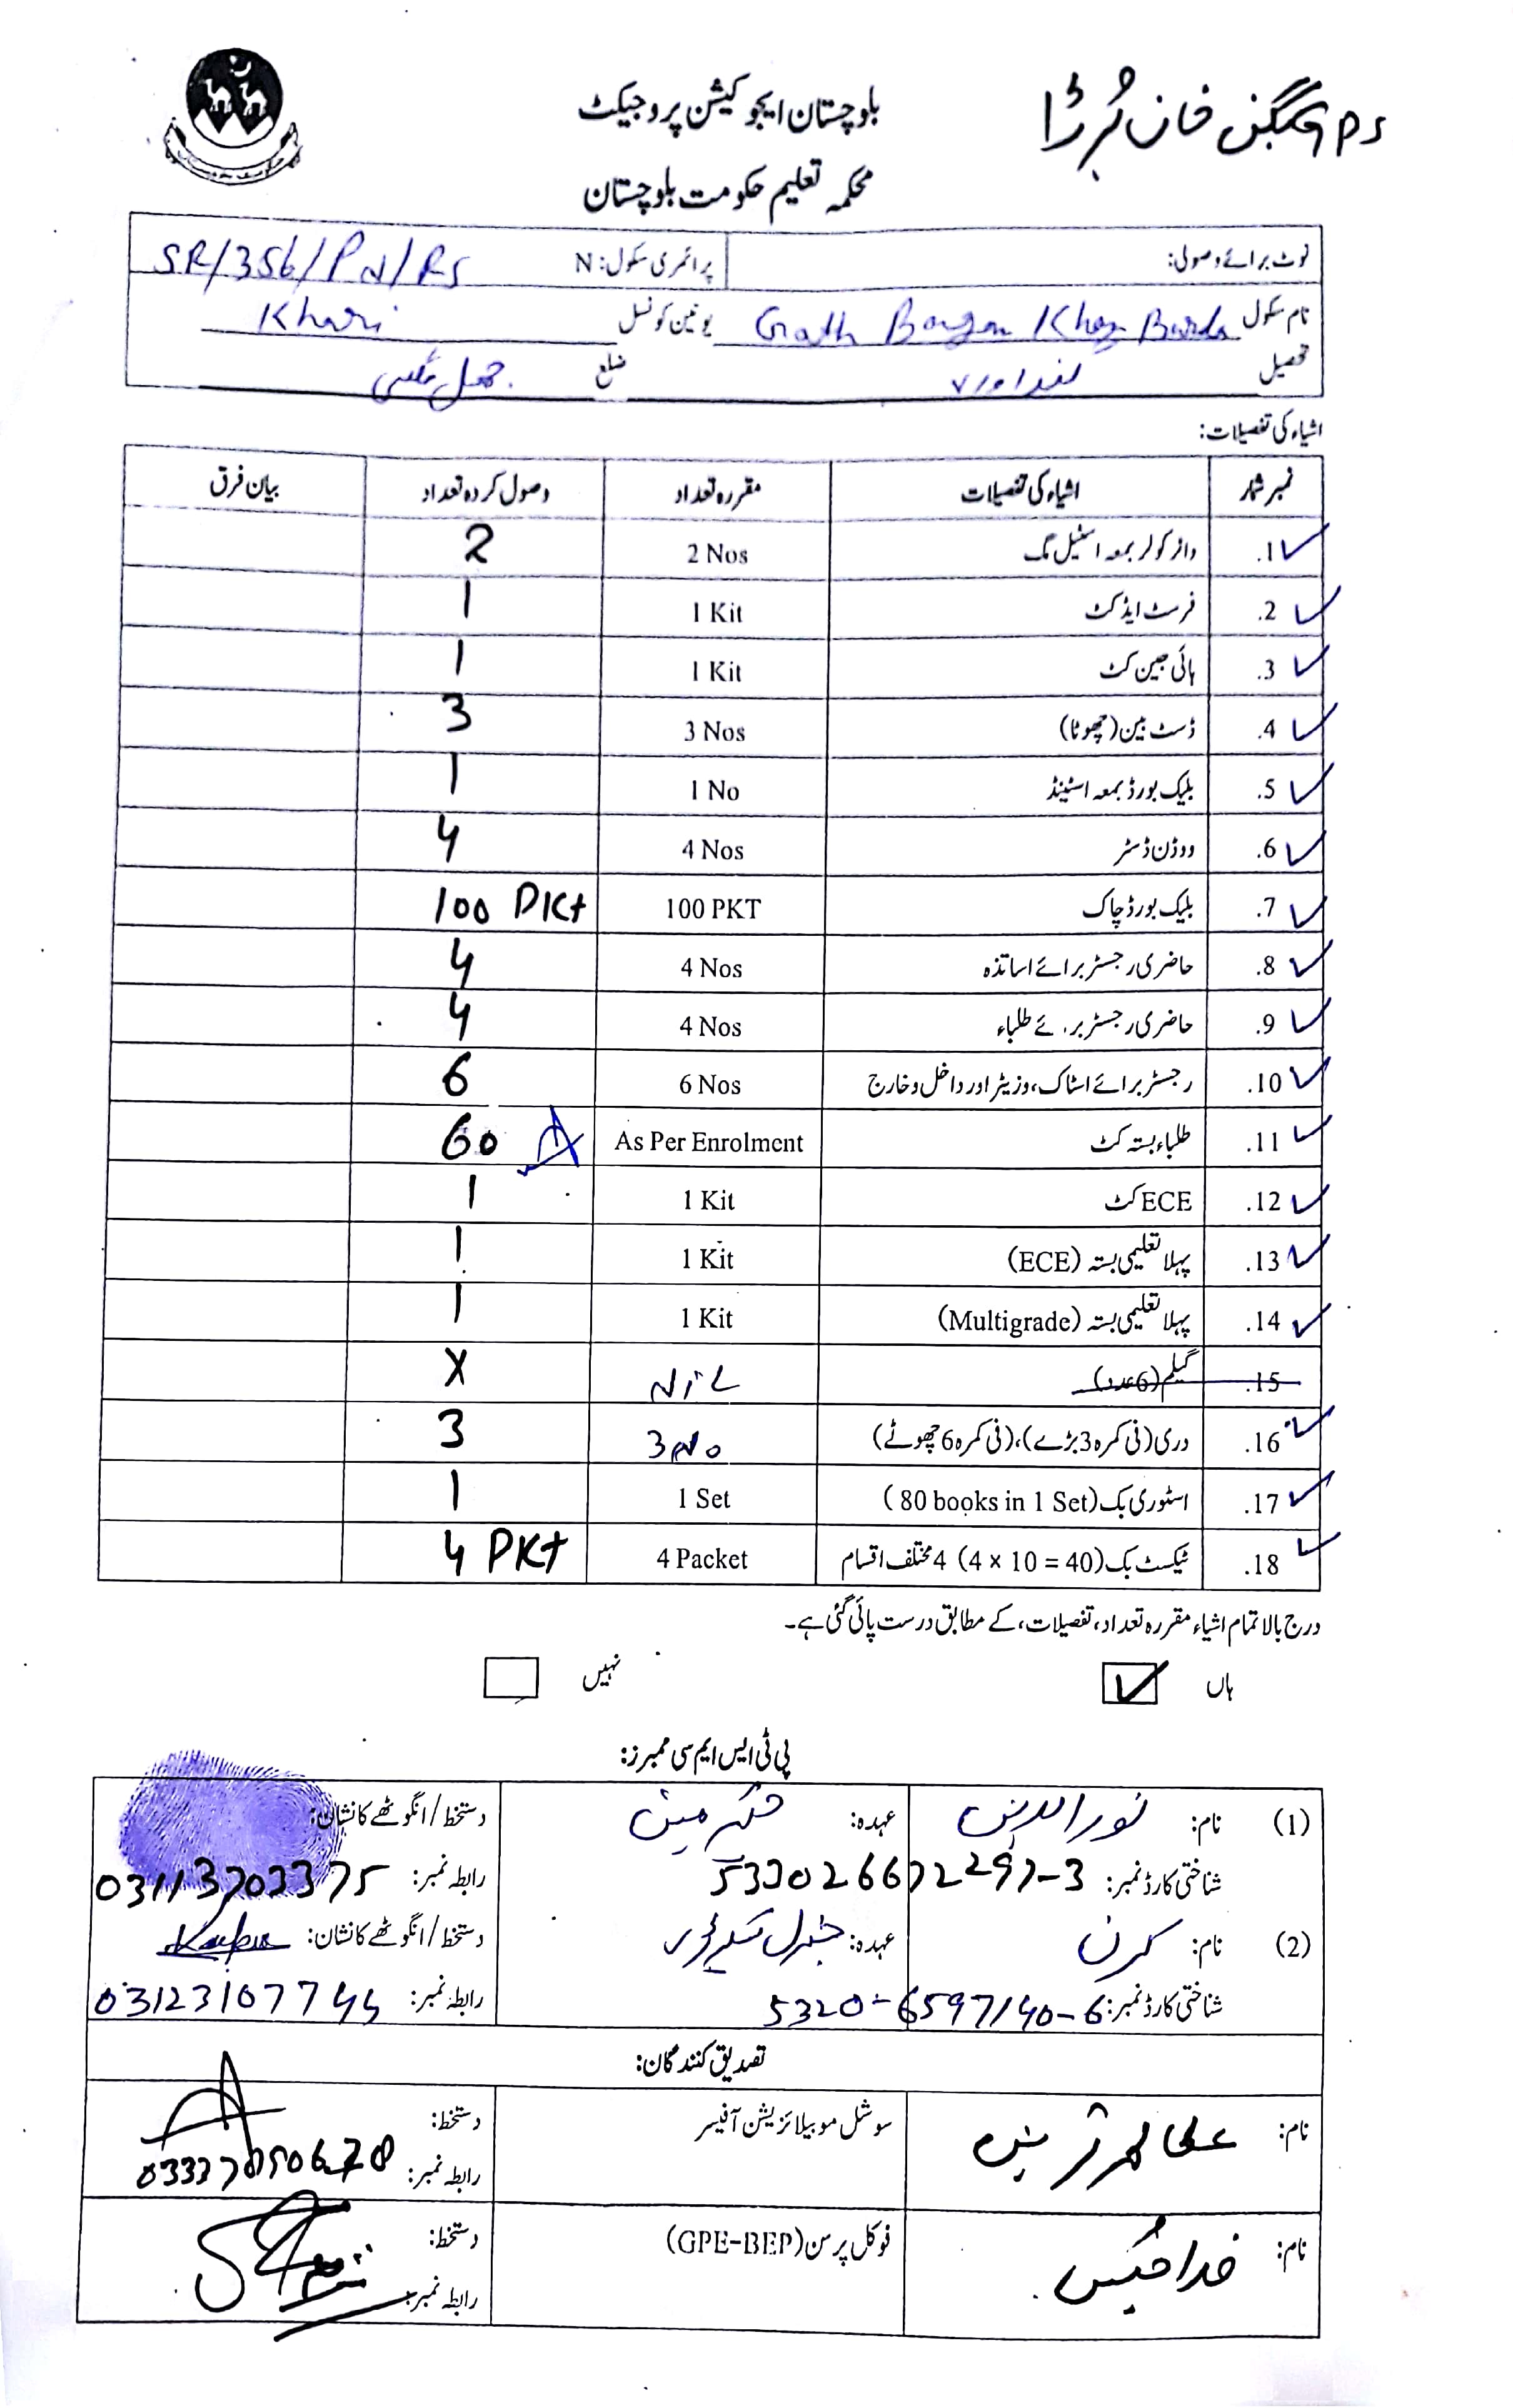 GPS بنگن خان بُرڑا
بلوچستان ایجوکیشن پروجیکٹ
محکمہ تعلیم حکومت بلوچستان
نوٹ برائے وصولی: پرائمری سکول: N SR/356/PN/RS
نام سکول Goath Bangan Khan Burda یونین کونسل Khari
تحصیل گنداواہ ضلع جھل مگسی
اشیاء کی تفصیلات:
نمبر شمار اشیاء کی تفصیلات مقررہ تعداد وصول کردہ تعداد بیان فرق
1. واٹر کولر بمعہ اسٹیل مگ 2 Nos 2
2. فرسٹ ایڈ کٹ 1 Kit 1
3. ہائی جین کٹ 1 Kit 1
4. ڈسٹ بین (چھوٹا) 3 Nos 3
5. بلیک بورڈ بمعہ اسٹینڈ 1 No 1
6. ووڈن ڈسٹر 4 Nos 4
7. بلیک بورڈ چاک 100 PKT 100 PKt
8. حاضری رجسٹر برائے اساتذہ 4 Nos 4
9. حاضری رجسٹر برائے طلباء 4 Nos 4
10. رجسٹر برائے اسٹاک، وزیٹر اور داخل و خارج 6 Nos 6
11. طلباء بستہ کٹ As Per Enrolment 60
12. ECE کٹ 1 Kit 1
13. پہلا تعلیمی بستہ (ECE) 1 Kit 1
14. پہلا تعلیمی بستہ (Multigrade) 1 Kit 1
15. گیلم (6 عدد) NiL X
16. دری (فی کمرہ 3 بڑے)، (فی کمرہ 6 چھوٹے) 3 No 3
17. اسٹوری بک (80 books in 1 Set) 1 Set 1
18. ٹیکسٹ بک (4 x 10 = 40) 4 مختلف اقسام 4 Packet 4 PKt
درج بالا تمام اشیاء مقررہ تعداد، تفصیلات، کے مطابق درست پائی گئی ہے۔
ہاں نہیں
پی ٹی ایس ایم سی ممبرز:
(1) نام: نورالدین عہدہ: دستخط/انگوٹھے کا نشان:
شناختی کارڈ نمبر: رابطہ نمبر: 03113703375
(2) نام: کرن عہدہ: جنرل سیکرٹری دستخط/انگوٹھے کا نشان:
شناختی کارڈ نمبر: رابطہ نمبر: 03123107744
تصدیق کنندگان:
نام: سوشل موبیلائزیشن آفیسر دستخط:
رابطہ نمبر:
نام: فوکل پرسن (GPE-BEP) دستخط:
رابطہ نمبر: